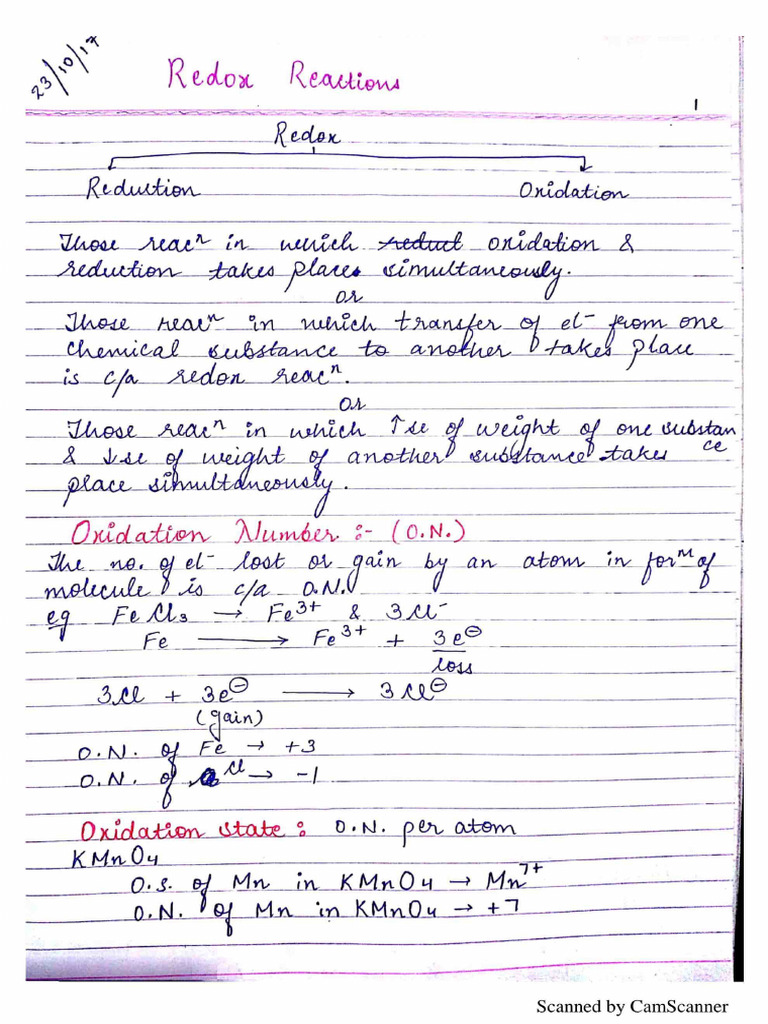 23/10/17
Redox Reactions
1
Redox
Reduction Oxidation
Those reacⁿ in which reduct oxidation &
reduction takes place simultaneously.
or
Those reacⁿ in which transfer of el⁻ from one
chemical substance to another takes place
is c/a redox reacⁿ.
or
Those reacⁿ in which ↑se of weight of one substan
& ↓se of weight of another substance takes ce
place simultaneously.
Oxidation Number :- (O.N.)
The no. of el⁻ lost or gain by an atom in forᵐ of
molecule is c/a O.N.
eg FeCl₃ → Fe³⁺ & 3Cl⁻
Fe → Fe³⁺ + 3e⊖
loss
3Cl + 3e⊖ → 3Cl⊖
(gain)
O.N. of Fe → +3
O.N. of Cl → -1
Oxidation state : O.N. per atom
KMnO₄
O.S. of Mn in KMnO₄ → Mn⁷⁺
O.N. of Mn in KMnO₄ → +7
Scanned by CamScanner